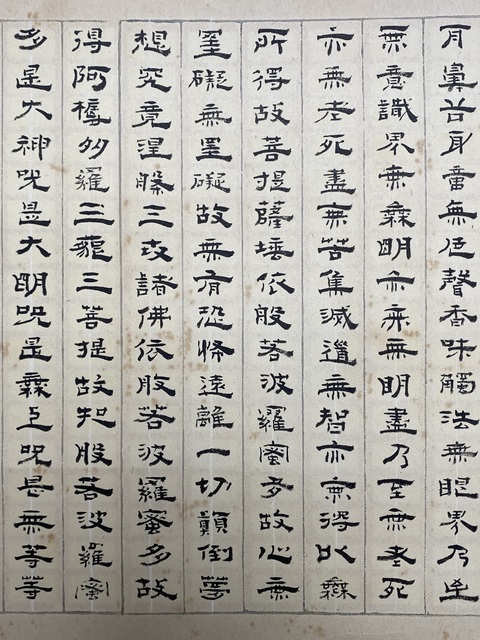 耳鼻舌身意無色聲香味觸法無眼界乃至
無意識界無無明亦無無明盡乃至無老死
亦無老死盡無苦集滅道無智亦無得以無
所得故菩提薩埵依般若波羅蜜多故心無
罣礙無罣礙故無有恐怖遠離一切顛倒夢
想究竟涅槃三世諸佛依般若波羅蜜多故
得阿耨多羅三藐三菩提故知般若波羅蜜
多是大神咒是大明咒是無上咒是無等等